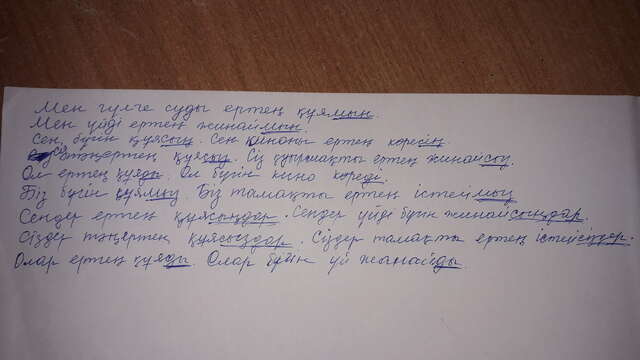 Мен гүлге суды ертең құямын.
Мен үйді ертең жинаймын.
Сен бүгін құясың. Сен киноны ертең көресің.
Сіз таңертең құясыз. Сіз құрмақты ертең жинайсыз.
Ол ертең құяды. Ол бүгін кино көреді.
Біз бүгін құямыз. Біз тамақты ертең істейміз
Сендер ертең құясыңдар. Сендер үйді бүгін жинайсыңдар.
Сіздер таңертең құясыздар. Сіздер тамақты ертең істейсіздер.
Олар ертең құяды. Олар бүгін үй жинайды.